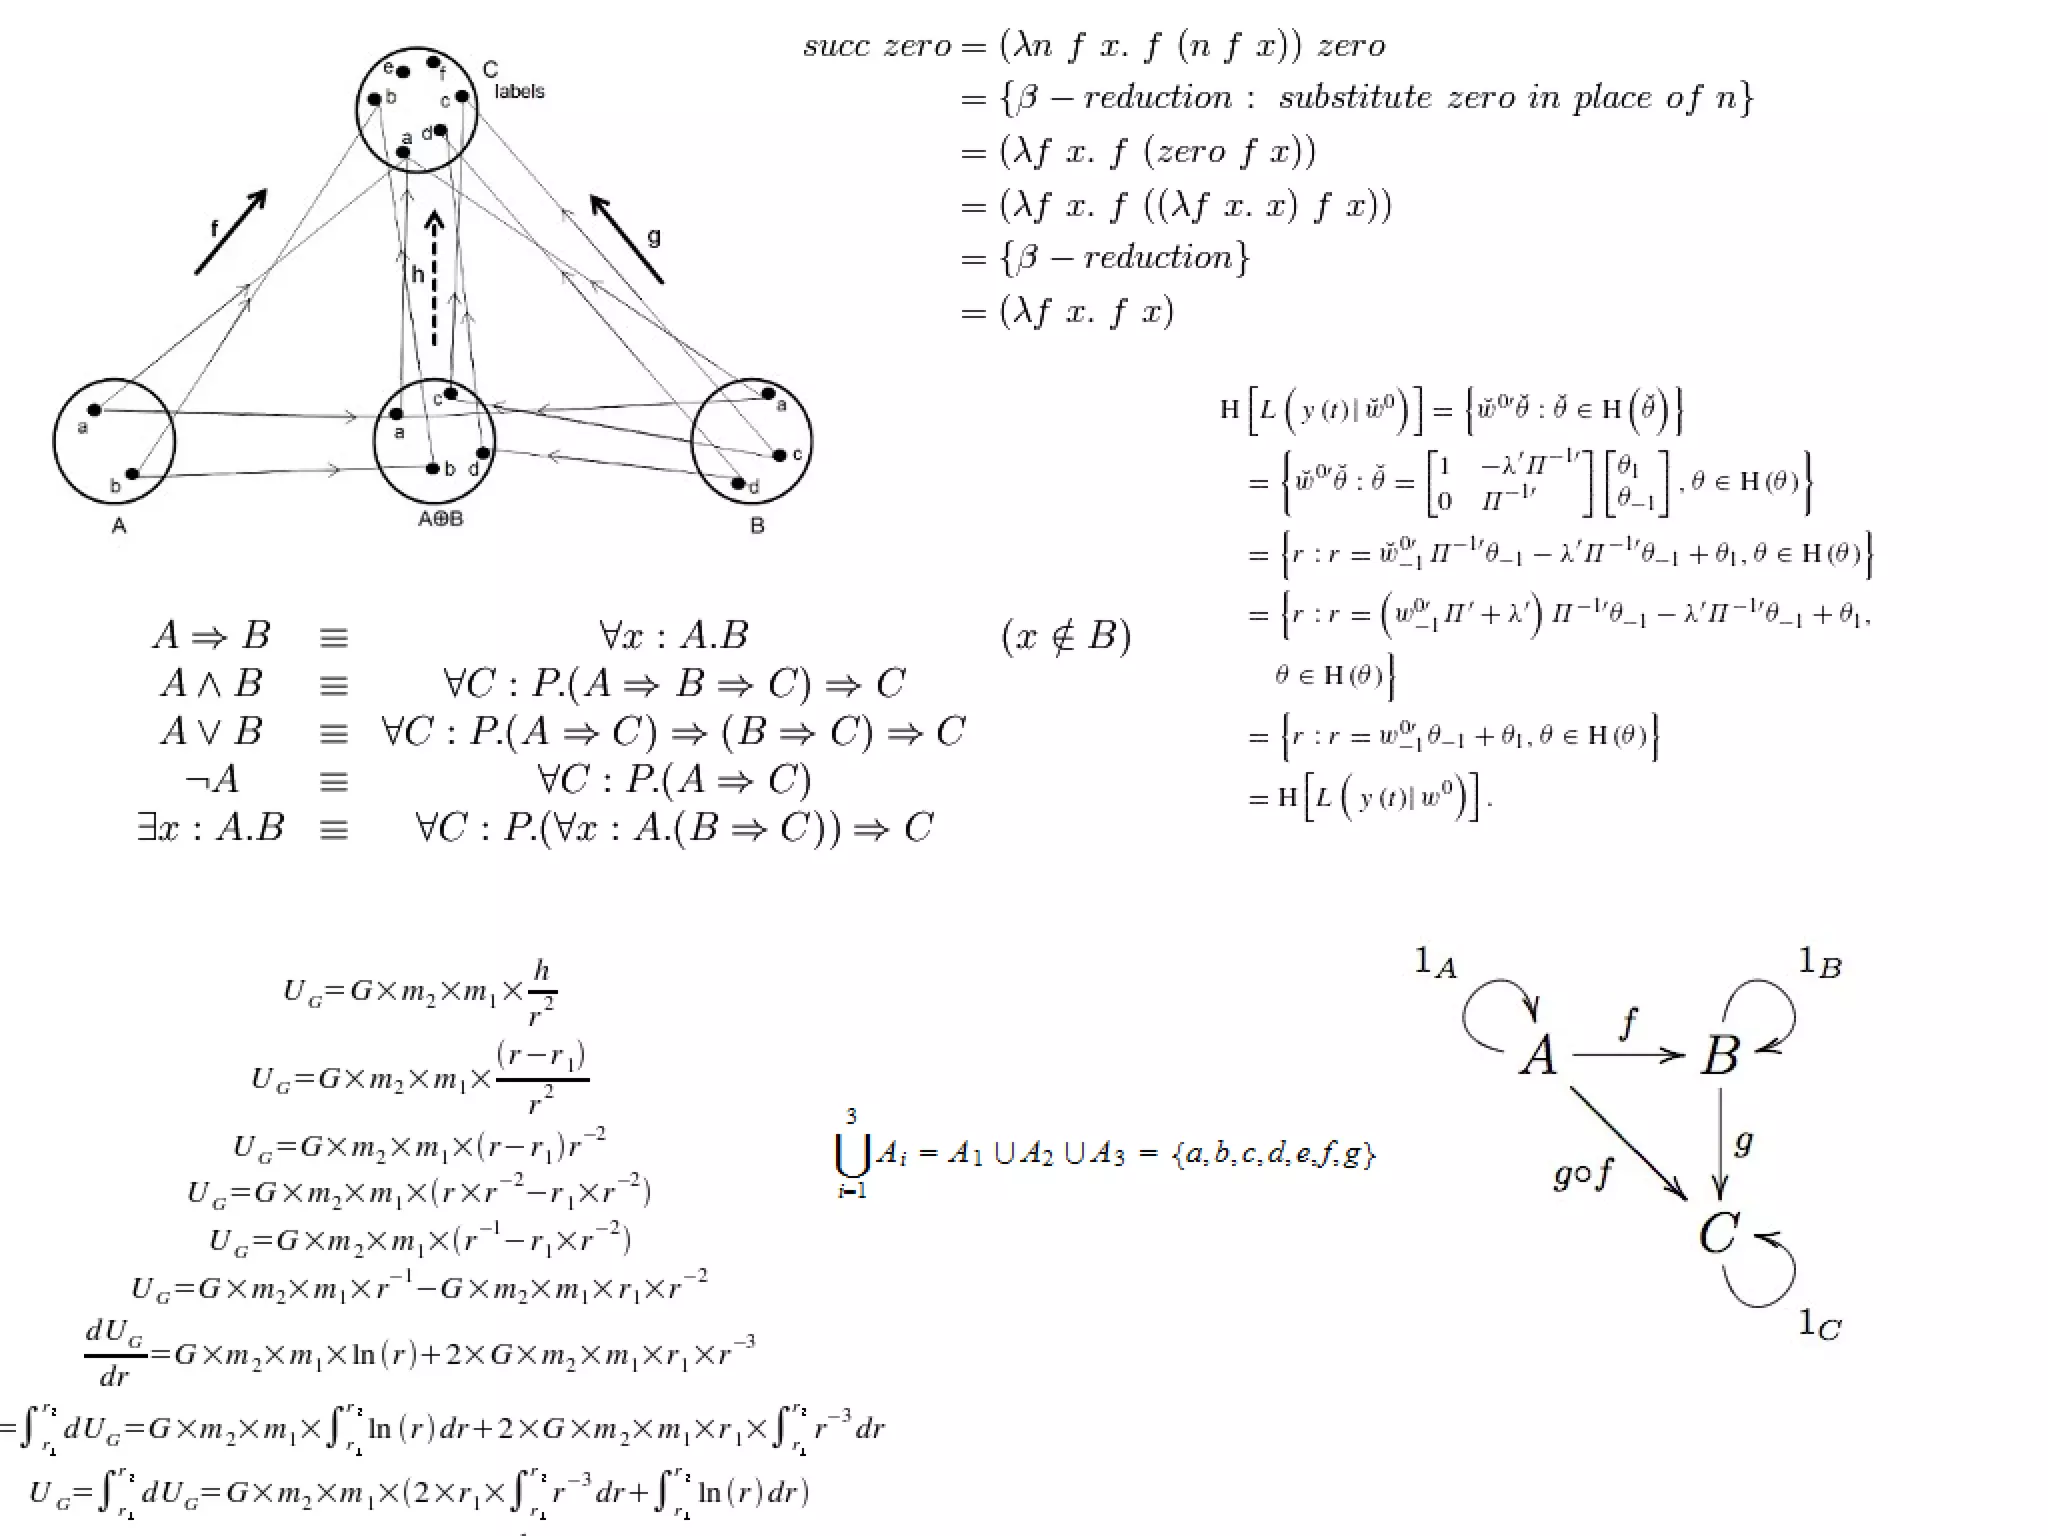 e f C
labels
b c
a d
f
g
h
a
b
A
c
a
b d
A⊕B
a
c
d
B
succ zero = (λn f x. f (n f x)) zero
= {β − reduction : substitute zero in place of n}
= (λf x. f (zero f x))
= (λf x. f ((λf x. x) f x))
= {β − reduction}
= (λf x. f x)
H[L(y(t)| w̌⁰)] = {w̌⁰′θ̌ : θ̌ ∈ H(θ̌)}
= {w̌⁰′θ̌ : θ̌ = [1 −λ′Π⁻¹′ 0 Π⁻¹′][θ₁ θ₋₁], θ ∈ H(θ)}
= {r : r = w̌⁰′₋₁Π⁻¹′θ₋₁ − λ′Π⁻¹′θ₋₁ + θ₁, θ ∈ H(θ)}
= {r : r = (w⁰′₋₁Π′ + λ′) Π⁻¹′θ₋₁ − λ′Π⁻¹′θ₋₁ + θ₁,
θ ∈ H(θ)}
= {r : r = w⁰′₋₁θ₋₁ + θ₁, θ ∈ H(θ)}
= H[L(y(t)| w⁰)].
A ⇒ B ≡ ∀x : A.B (x ∉ B)
A ∧ B ≡ ∀C : P.(A ⇒ B ⇒ C) ⇒ C
A ∨ B ≡ ∀C : P.(A ⇒ C) ⇒ (B ⇒ C) ⇒ C
¬A ≡ ∀C : P.(A ⇒ C)
∃x : A.B ≡ ∀C : P.(∀x : A.(B ⇒ C)) ⇒ C
U_G=G×m₂×m₁×h/r²
U_G=G×m₂×m₁×(r−r₁)/r²
U_G=G×m₂×m₁×(r−r₁)r⁻²
U_G=G×m₂×m₁×(r×r⁻²−r₁×r⁻²)
U_G=G×m₂×m₁×(r⁻¹−r₁×r⁻²)
U_G=G×m₂×m₁×r⁻¹−G×m₂×m₁×r₁×r⁻²
dU_G/dr=G×m₂×m₁×ln(r)+2×G×m₂×m₁×r₁×r⁻³
=∫_{r₁}^{r₂}dU_G=G×m₂×m₁×∫_{r₁}^{r₂}ln(r)dr+2×G×m₂×m₁×r₁×∫_{r₁}^{r₂}r⁻³dr
U_G=∫_{r₁}^{r₂}dU_G=G×m₂×m₁×(2×r₁×∫_{r₁}^{r₂}r⁻³dr+∫_{r₁}^{r₂}ln(r)dr)
⋃_{i=1}^{3} A_i = A₁ ∪ A₂ ∪ A₃ = {a,b,c,d,e,f,g}
1_A 1_B
f
A B
g
g∘f
C
1_C